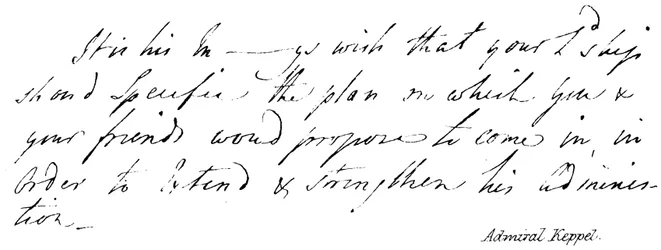 It is his M——ys wish that your Ldship
shoud Specifie the plan on which you &
your friends woud propose to come in, in
order to Extend & strengthen his adminis-
tion_
Admiral Keppel.